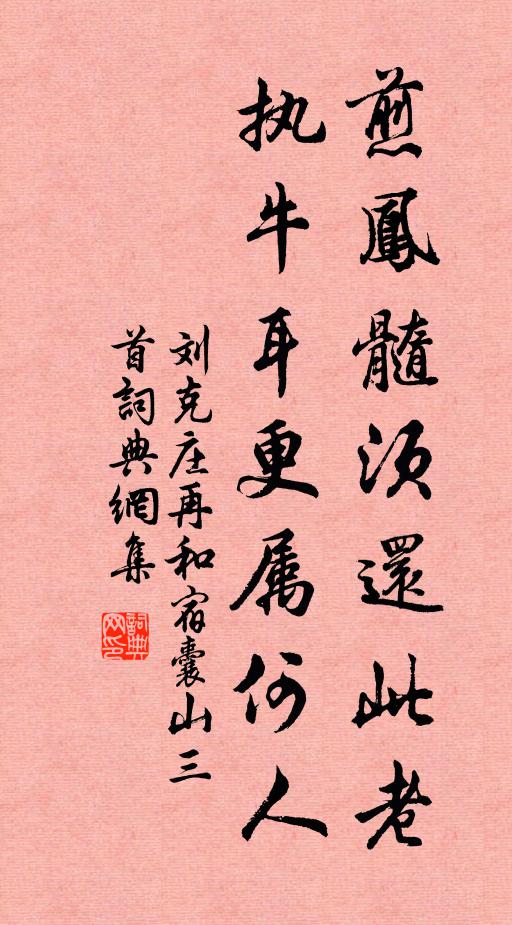 煎鳳髓須還此老
执牛耳更属何人
刘克庄再和宿囊山三
首詞典網集
詞典網印